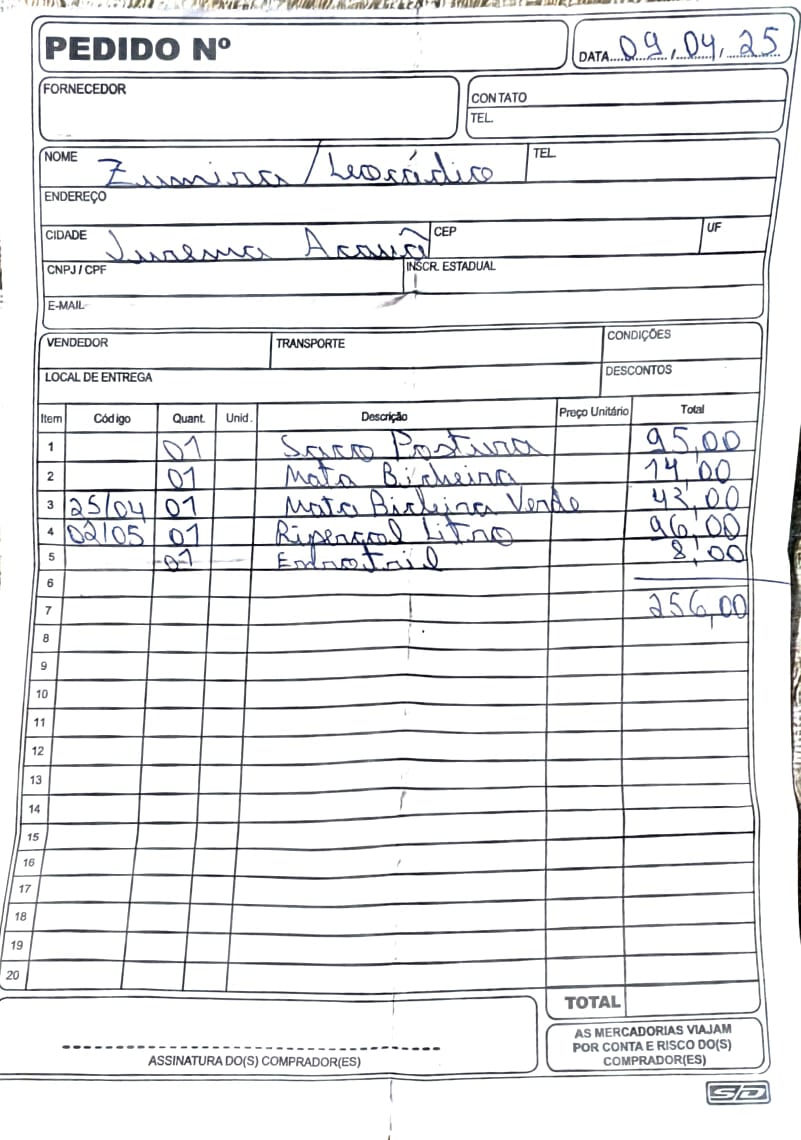 PEDIDO Nº
DATA 09, 04, 25
FORNECEDOR
CONTATO
TEL.
NOME Zumira / Leocádico
TEL.
ENDEREÇO
CIDADE Jurema Acauã CEP UF
CNPJ / CPF INSCR. ESTADUAL
E-MAIL
VENDEDOR TRANSPORTE CONDIÇÕES
LOCAL DE ENTREGA DESCONTOS
Item Código Quant. Unid. Descrição Preço Unitário Total
1 01 Saco Postura 95,00
2 01 Mata Bicheira 14,00
3 25/04 01 Mata Bicheira Verde 43,00
4 02/05 01 Ripercol Litro 96,00
5 01 8,00
6
7 256,00
8
9
10
11
12
13
14
15
16
17
18
19
20
TOTAL
ASSINATURA DO(S) COMPRADOR(ES)
AS MERCADORIAS VIAJAM
POR CONTA E RISCO DO(S)
COMPRADOR(ES)
SD